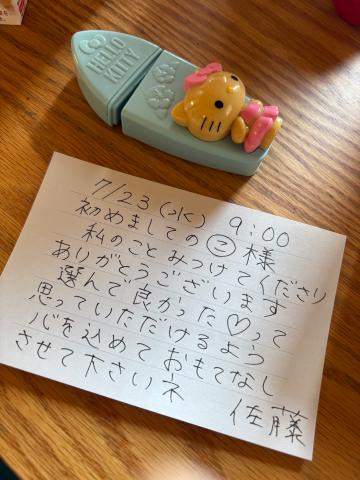 HELLO
KITTY
7/23 (水) 9:00
初めましての(こ)様
私のことみつけてくださり
ありがとうございます
選んで良かった♡って
思っていただけるよう
心を込めておもてなし
させて下さいネ
佐藤